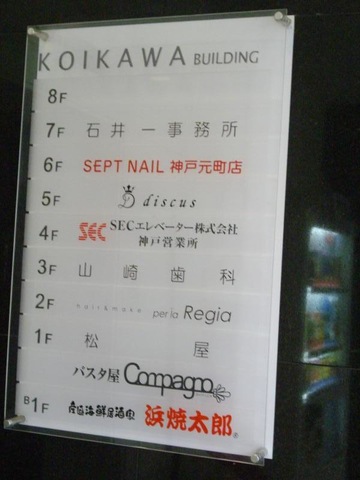 KOIKAWA BUILDING
8F
7F 石井一事務所
6F SEPT NAIL 神戸元町店
5F discus
4F SEC SECエレベーター株式会社
神戸営業所
3F 山崎歯科
2F hair&make perla Regia
1F 松屋
パスタ屋 Compagno
B1F 産直海鮮居酒家 浜焼太郎